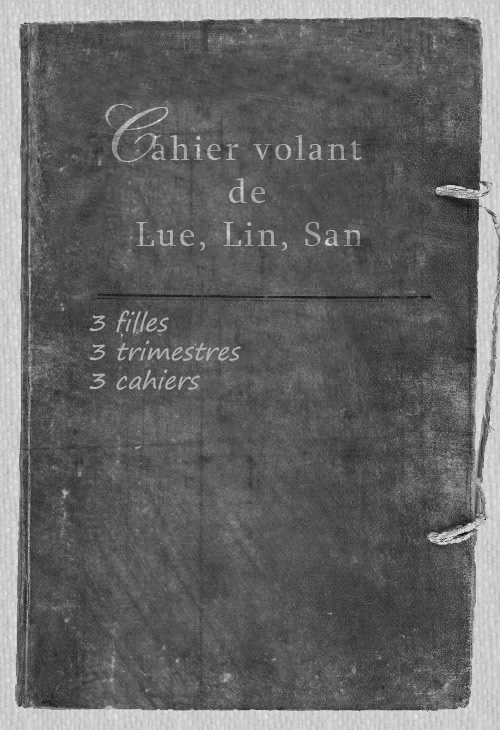 Cahier volant
de
Lue, Lin, San
3 filles
3 trimestres
3 cahiers